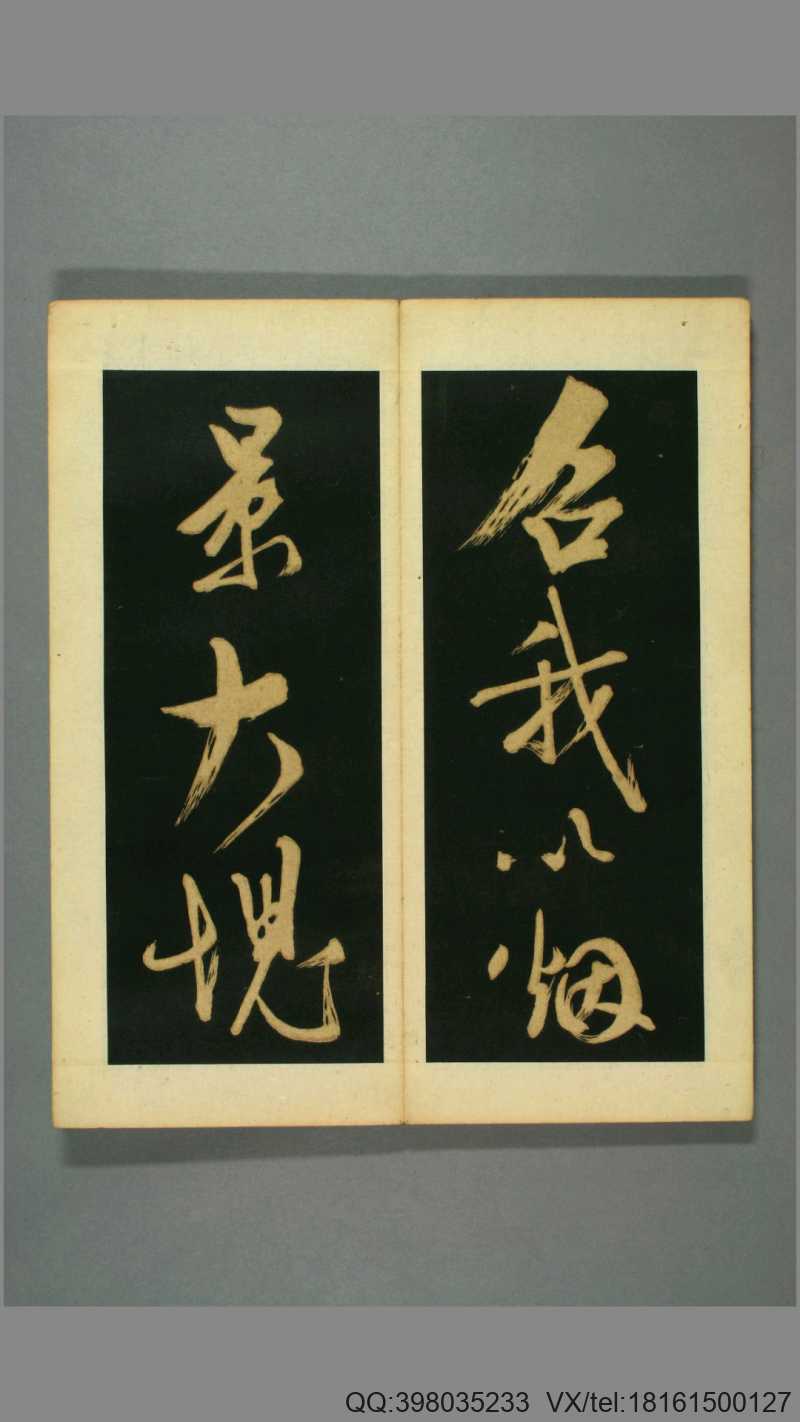 召我以烟
景大塊
QQ:398035233 VX/tel:18161500127